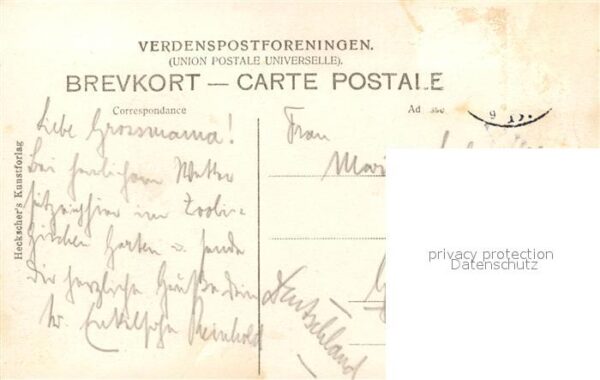 VERDENSPOSTFORENINGEN.
(UNION POSTALE UNIVERSELLE).
BREVKORT — CARTE POSTALE
Correspondance
Ad sse
9 15.
Heckscher's Kunstforlag
Liebe Grossmama!
Bei herrlichem Wetter
sitze ich hier im Zoolo-
gischen Garten u. sende
Dir herzliche Grüße Dein
Reinhold
Frau
Mari
Deutschland
privacy protection
Datenschutz